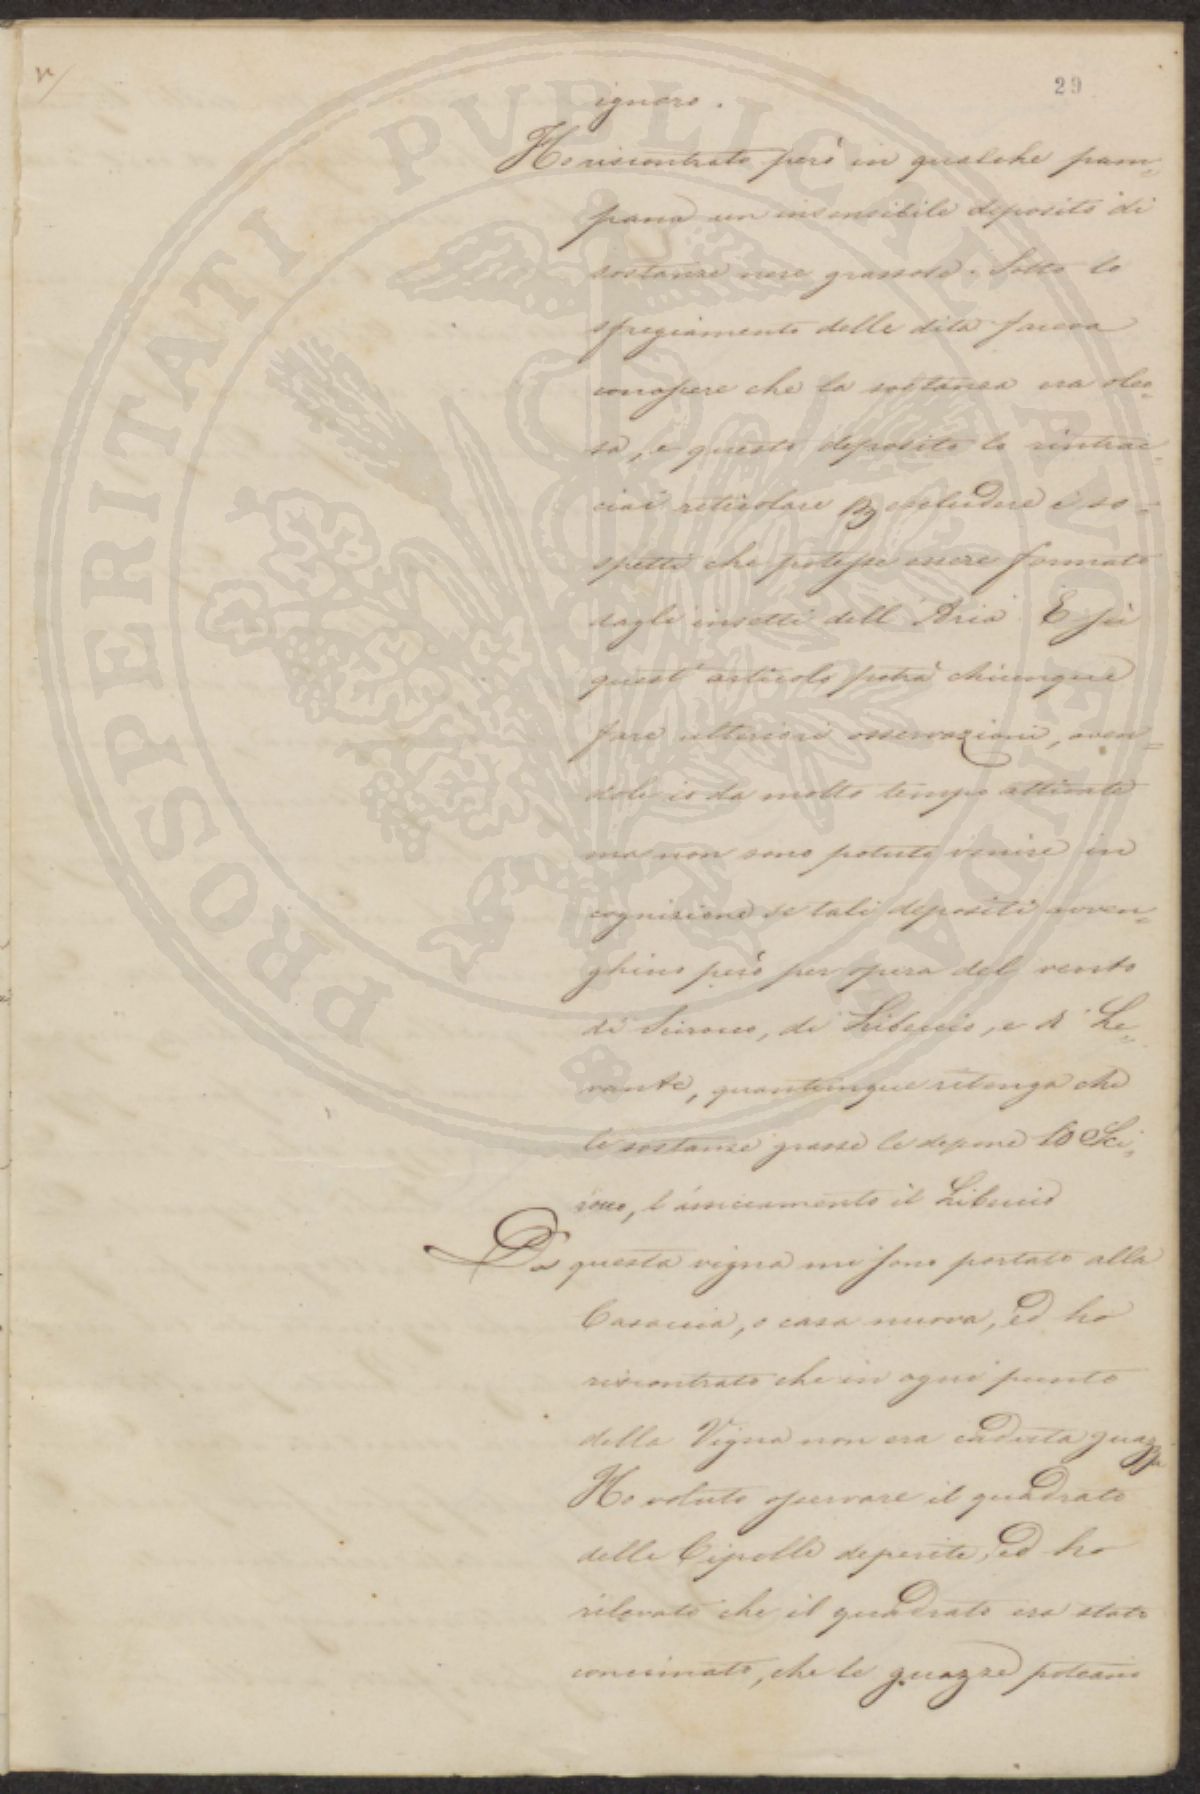 29
ignoro.
Ho riscontrato però in qualche pam=
pana un insensibile deposito di
sostanze nere grassose. Sotto lo
sfregiamento delle dita faceva
conoscere che la sostanza era oleo=
sa, e questo deposito lo rintrac=
ciai reticolare escludere i so=
spetti che potesse essere formato
dagli insetti dell'Aria. E su
quest'articolo potrà chiunque
fare ulteriori osservazioni, aven=
dole io da molto tempo attivate
ma non sono potuto venire in
cognizione se tali depositi avven=
ghino però per opera del vento
di Scirocco, di Libeccio, e di Le=
vante, quantunque ritenga che
le sostanze grasse le depone lo Sci=
rocco, l'arsicciamento il Libeccio
Da questa vigna mi sono portato alla
Casaccia, o casa nuova, ed ho
riscontrato che in ogni punto
della Vigna non era caduta guazza
Ho voluto osservare il quadrato
delle Cipolle deperite, ed ho
rilevato che il quadrato era stato
concimato, che le guazze poteano
PROSPERITATI PVBLICAE AVGENDAE